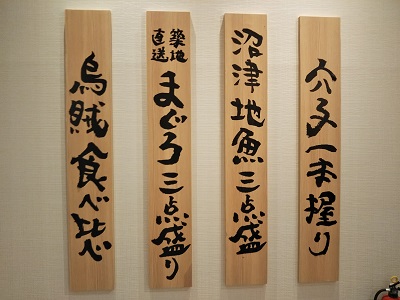 穴子一本握り
沼津地魚三点盛
築地直送まぐろ三点盛り
烏賊食べ比べ